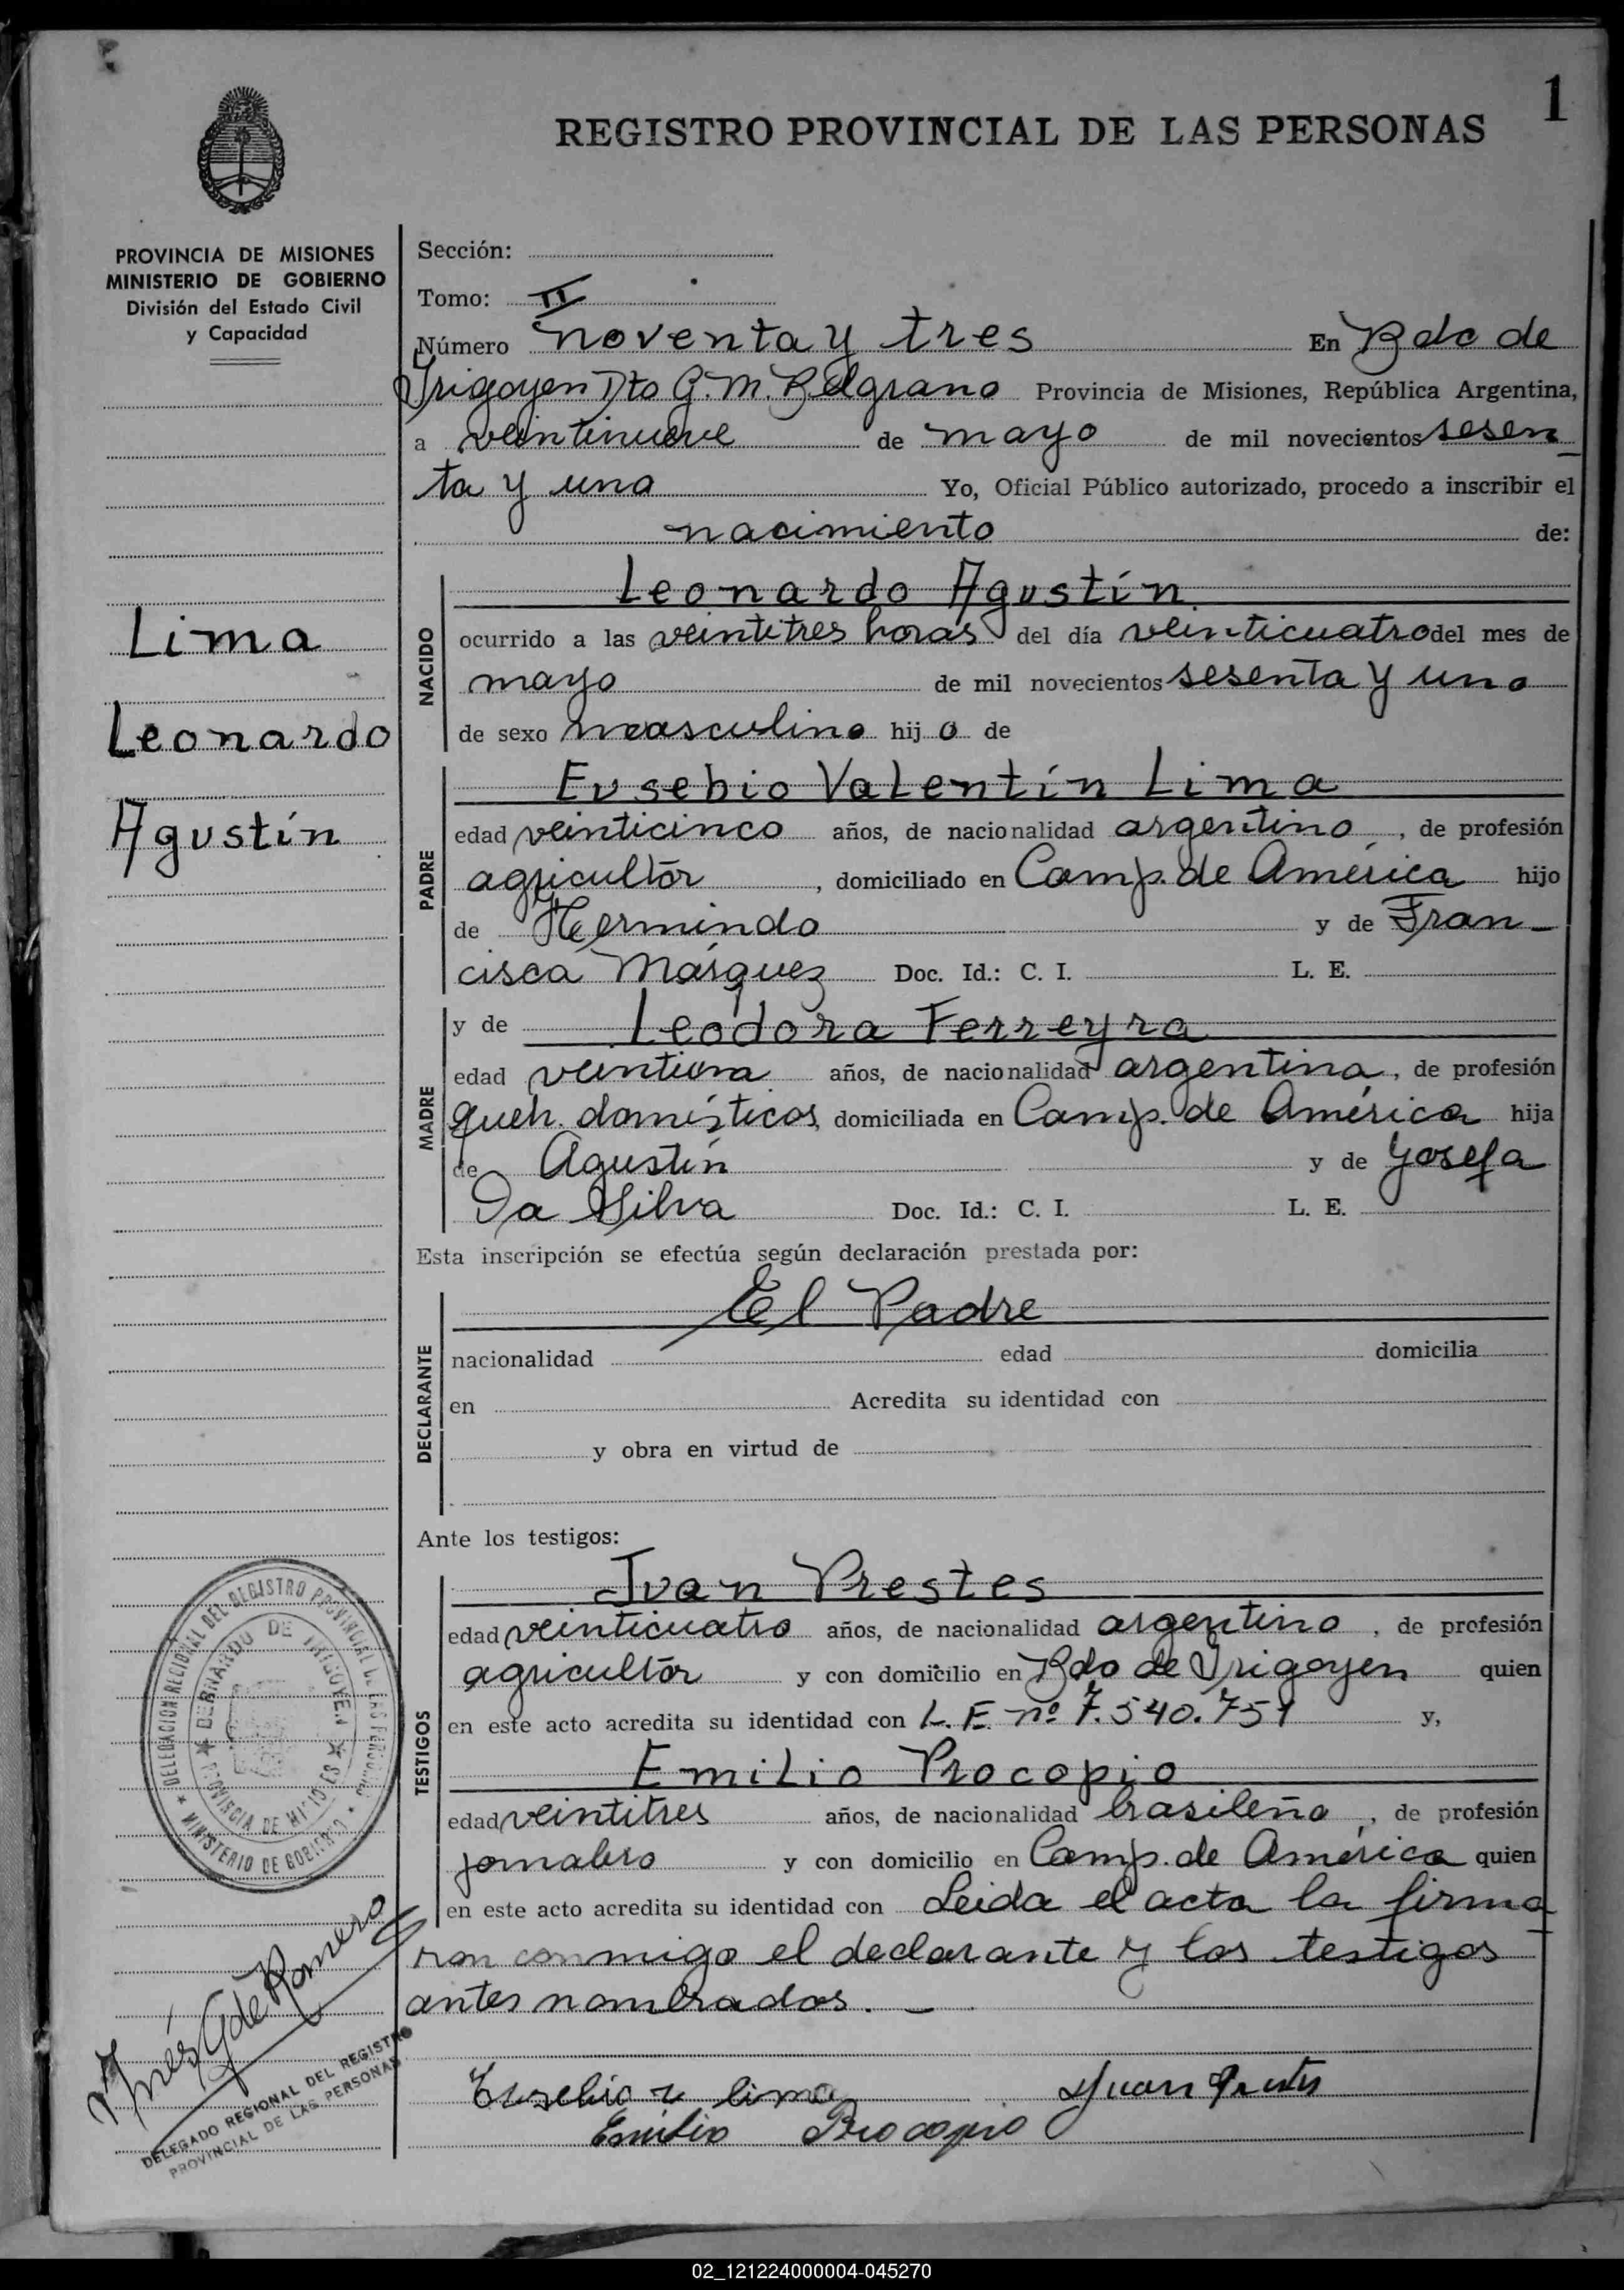 1
REGISTRO PROVINCIAL DE LAS PERSONAS
PROVINCIA DE MISIONES
MINISTERIO DE GOBIERNO
División del Estado Civil
y Capacidad
Lima
Leonardo
Agustín
Sección:
Tomo: II
Número noventa y tres En Bdo de
Yrigoyen Dto G. M. Belgrano Provincia de Misiones, República Argentina,
a veintinueve de mayo de mil novecientos sesen
ta y uno Yo, Oficial Público autorizado, procedo a inscribir el
nacimiento de:
NACIDO
Leonardo Agustín
ocurrido a las veintitres horas del día veinticuatro del mes de
mayo de mil novecientos sesenta y uno
de sexo masculino hij o de
PADRE
Eusebio Valentín Lima
edad veinticinco años, de nacionalidad argentino, de profesión
agricultor, domiciliado en Camp. de América hijo
de Hermindo y de Fran-
cisca Márquez Doc. Id.: C. I. L. E.
MADRE
y de Leodora Ferreyra
edad veintiuna años, de nacionalidad argentina, de profesión
queh. domésticos, domiciliada en Camp. de América hija
de Agustín y de Josefa
Da Silva Doc. Id.: C. I. L. E.
Esta inscripción se efectúa según declaración prestada por:
DECLARANTE
El Padre
nacionalidad edad domicilia
en Acredita su identidad con
y obra en virtud de
Ante los testigos:
TESTIGOS
Juan Prestes
edad veinticuatro años, de nacionalidad argentino, de profesión
agricultor y con domicilio en Bdo de Yrigoyen quien
en este acto acredita su identidad con L. E. nº 7.540.751 y,
Emilio Procopio
edad veintitres años, de nacionalidad brasileño, de profesión
jornalero y con domicilio en Camp. de América quien
en este acto acredita su identidad con Leida el acta la firma
ron conmigo el declarante y los testigos
antes nombrados. -
Eusebio v lima Juan Prestes
Emilio Procopio
DELEGACION REGIONAL DEL REGISTRO PROVINCIAL DE LAS PERSONAS
MINISTERIO DE GOBIERNO
BERNARDO DE IRIGOYEN
PROVINCIA DE MISIONES
Inés G de Romero
DELEGADO REGIONAL DEL REGISTRO
PROVINCIAL DE LAS PERSONAS
02_121224000004-045270